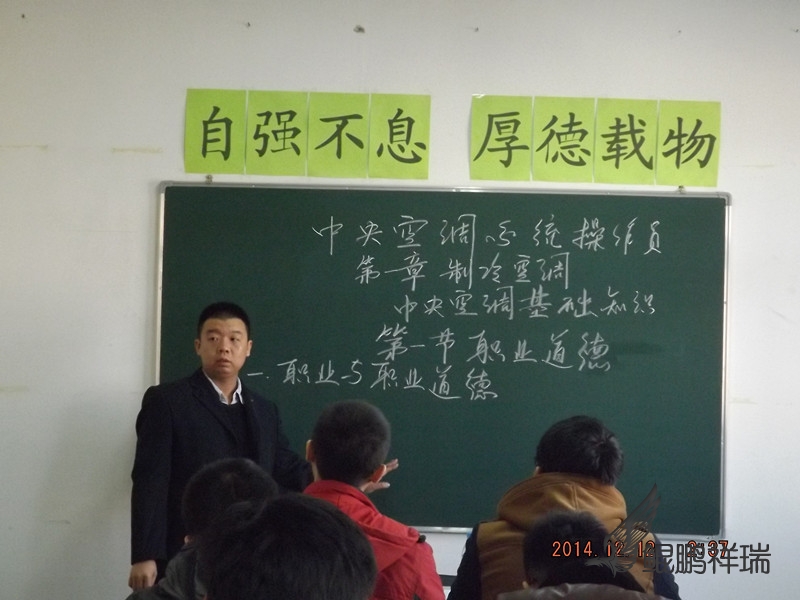 自强不息 厚德载物
中央空调系统操作员
第一章 制冷空调
中央空调基础知识
第一节 职业道德
一.职业与职业道德
2014.12.12
鲲鹏祥瑞